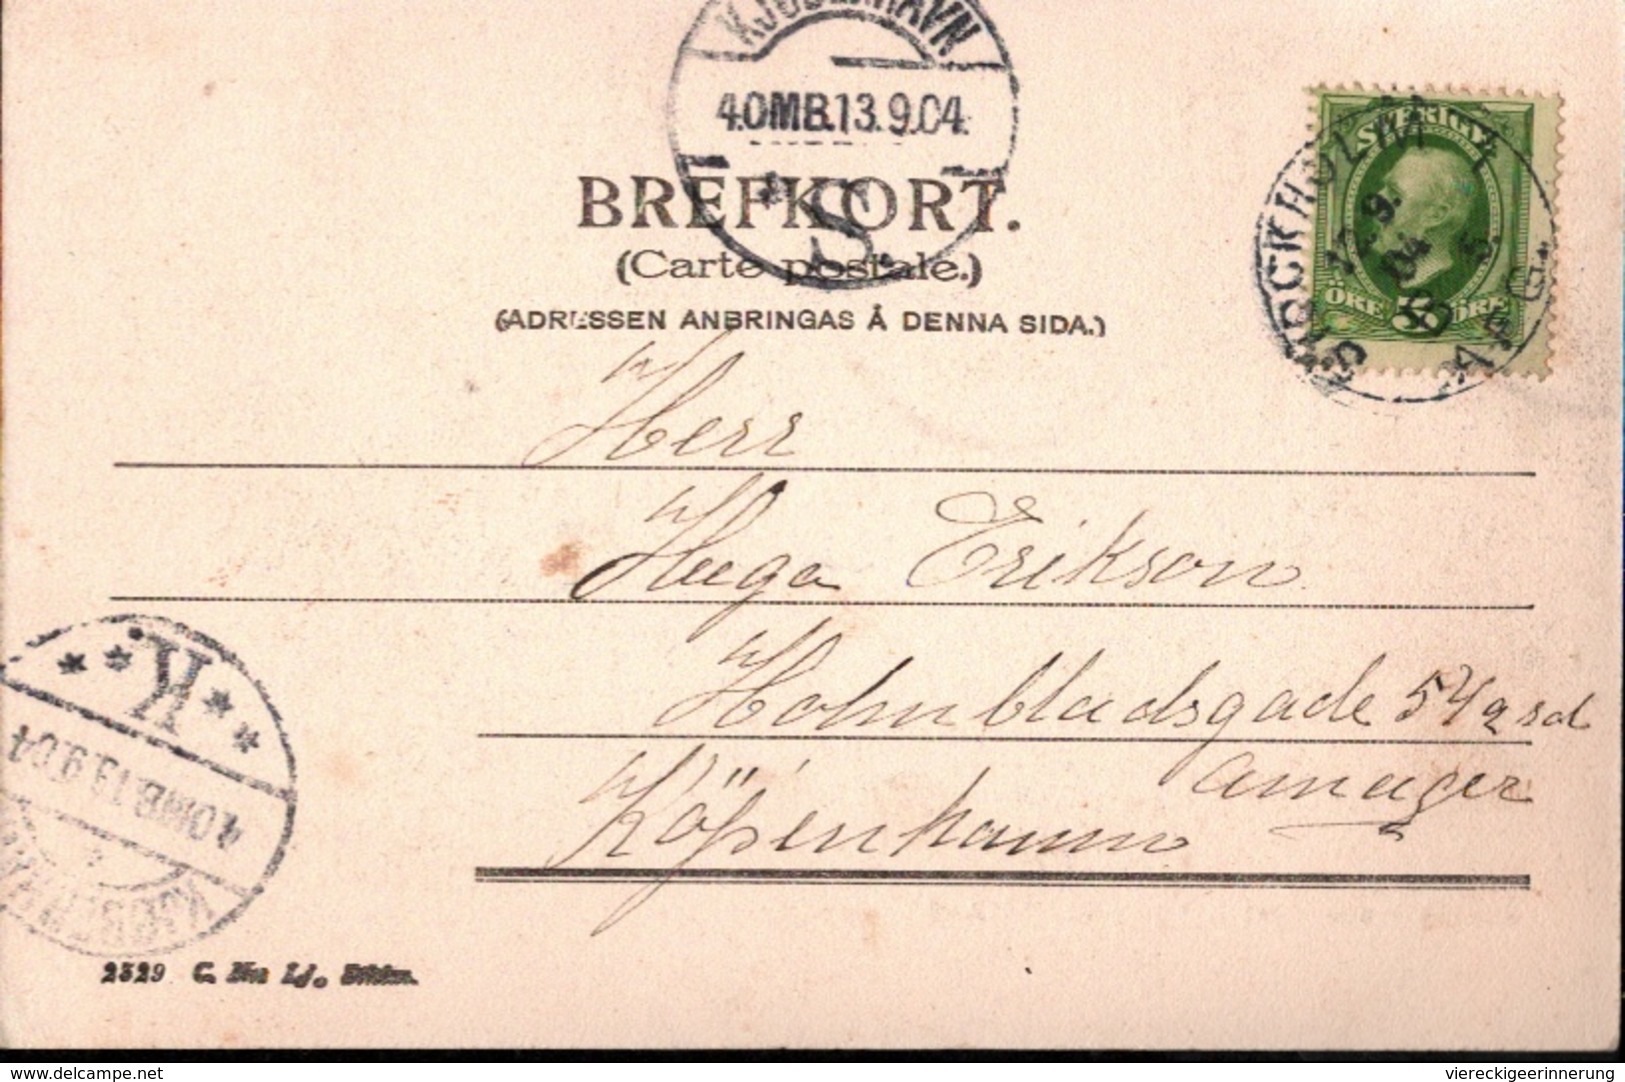 KJØBENHAVN
4.OMB.13.9.04.
*S*
BREFKORT.
(Carte postale.)
(ADRESSEN ANBRINGAS Å DENNA SIDA.)
SVERIGE
5
ÖRE ÖRE
STOCKHOLM
12.9.
04
Herr
Hugo Erikson
Holmbladsgade 54 2 sd
amager
Köpenhamn
**K**
4.OMB.13.9.04
KJØBENHAVN
2529
delcampe.net
viereckigeerinnerung